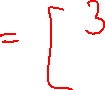 = [ 3